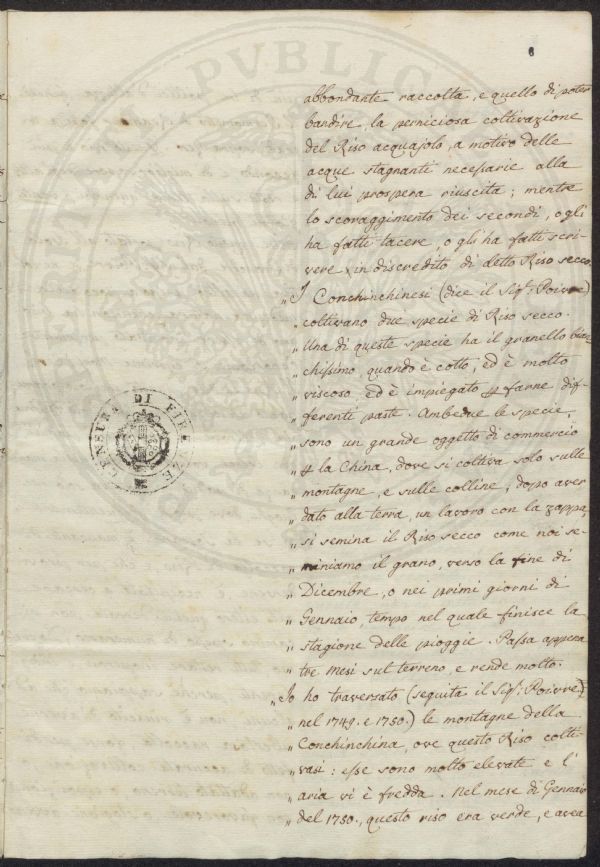 abbondante raccolta, e quello di poter
bandire, la perniciosa coltivazione
del Riso acquajolo, a motivo delle
acque stagnanti necessarie alla
di lui prospera riuscita; mentre
lo scoraggimento dei secondi, o gli
ha fatti tacere, o gli ha fatti scri-
vere in discredito di detto Riso secco.
„I Conchinchinesi (dice il Sigr: Poivre)
„coltivano due specie di Riso secco.
„Una di queste specie ha il granello bian
„chissimo, quando è cotto, ed è molto
„viscoso ed è impiegato p farne dif-
„ferenti paste. Ambedue le specie,
„sono un grande oggetto di commercio
„p la China, dove si coltiva solo sulle
„montagne, e sulle colline; dopo aver
„dato alla terra, un lavoro con la zappa,
„si semina il Riso secco come noi se-
„miniamo il grano, verso la fine di
„Dicembre, o nei primi giorni di
„Gennaio, tempo nel quale finisce la
„stagione delle pioggie. Passa appena
„tre mesi sul terreno, e rende molto.
„Io ho traversato (seguita il Sigr: Poivre)
„nel 1749. e 1750.) le montagne della
„Conchinchina, ove questo Riso colti-
„vasi: esse sono molto elevate e l'
„aria vi è fredda. Nel mese di Gennaio
„del 1750., questo riso era verde, e avea
CENSURA DI FIRENZE